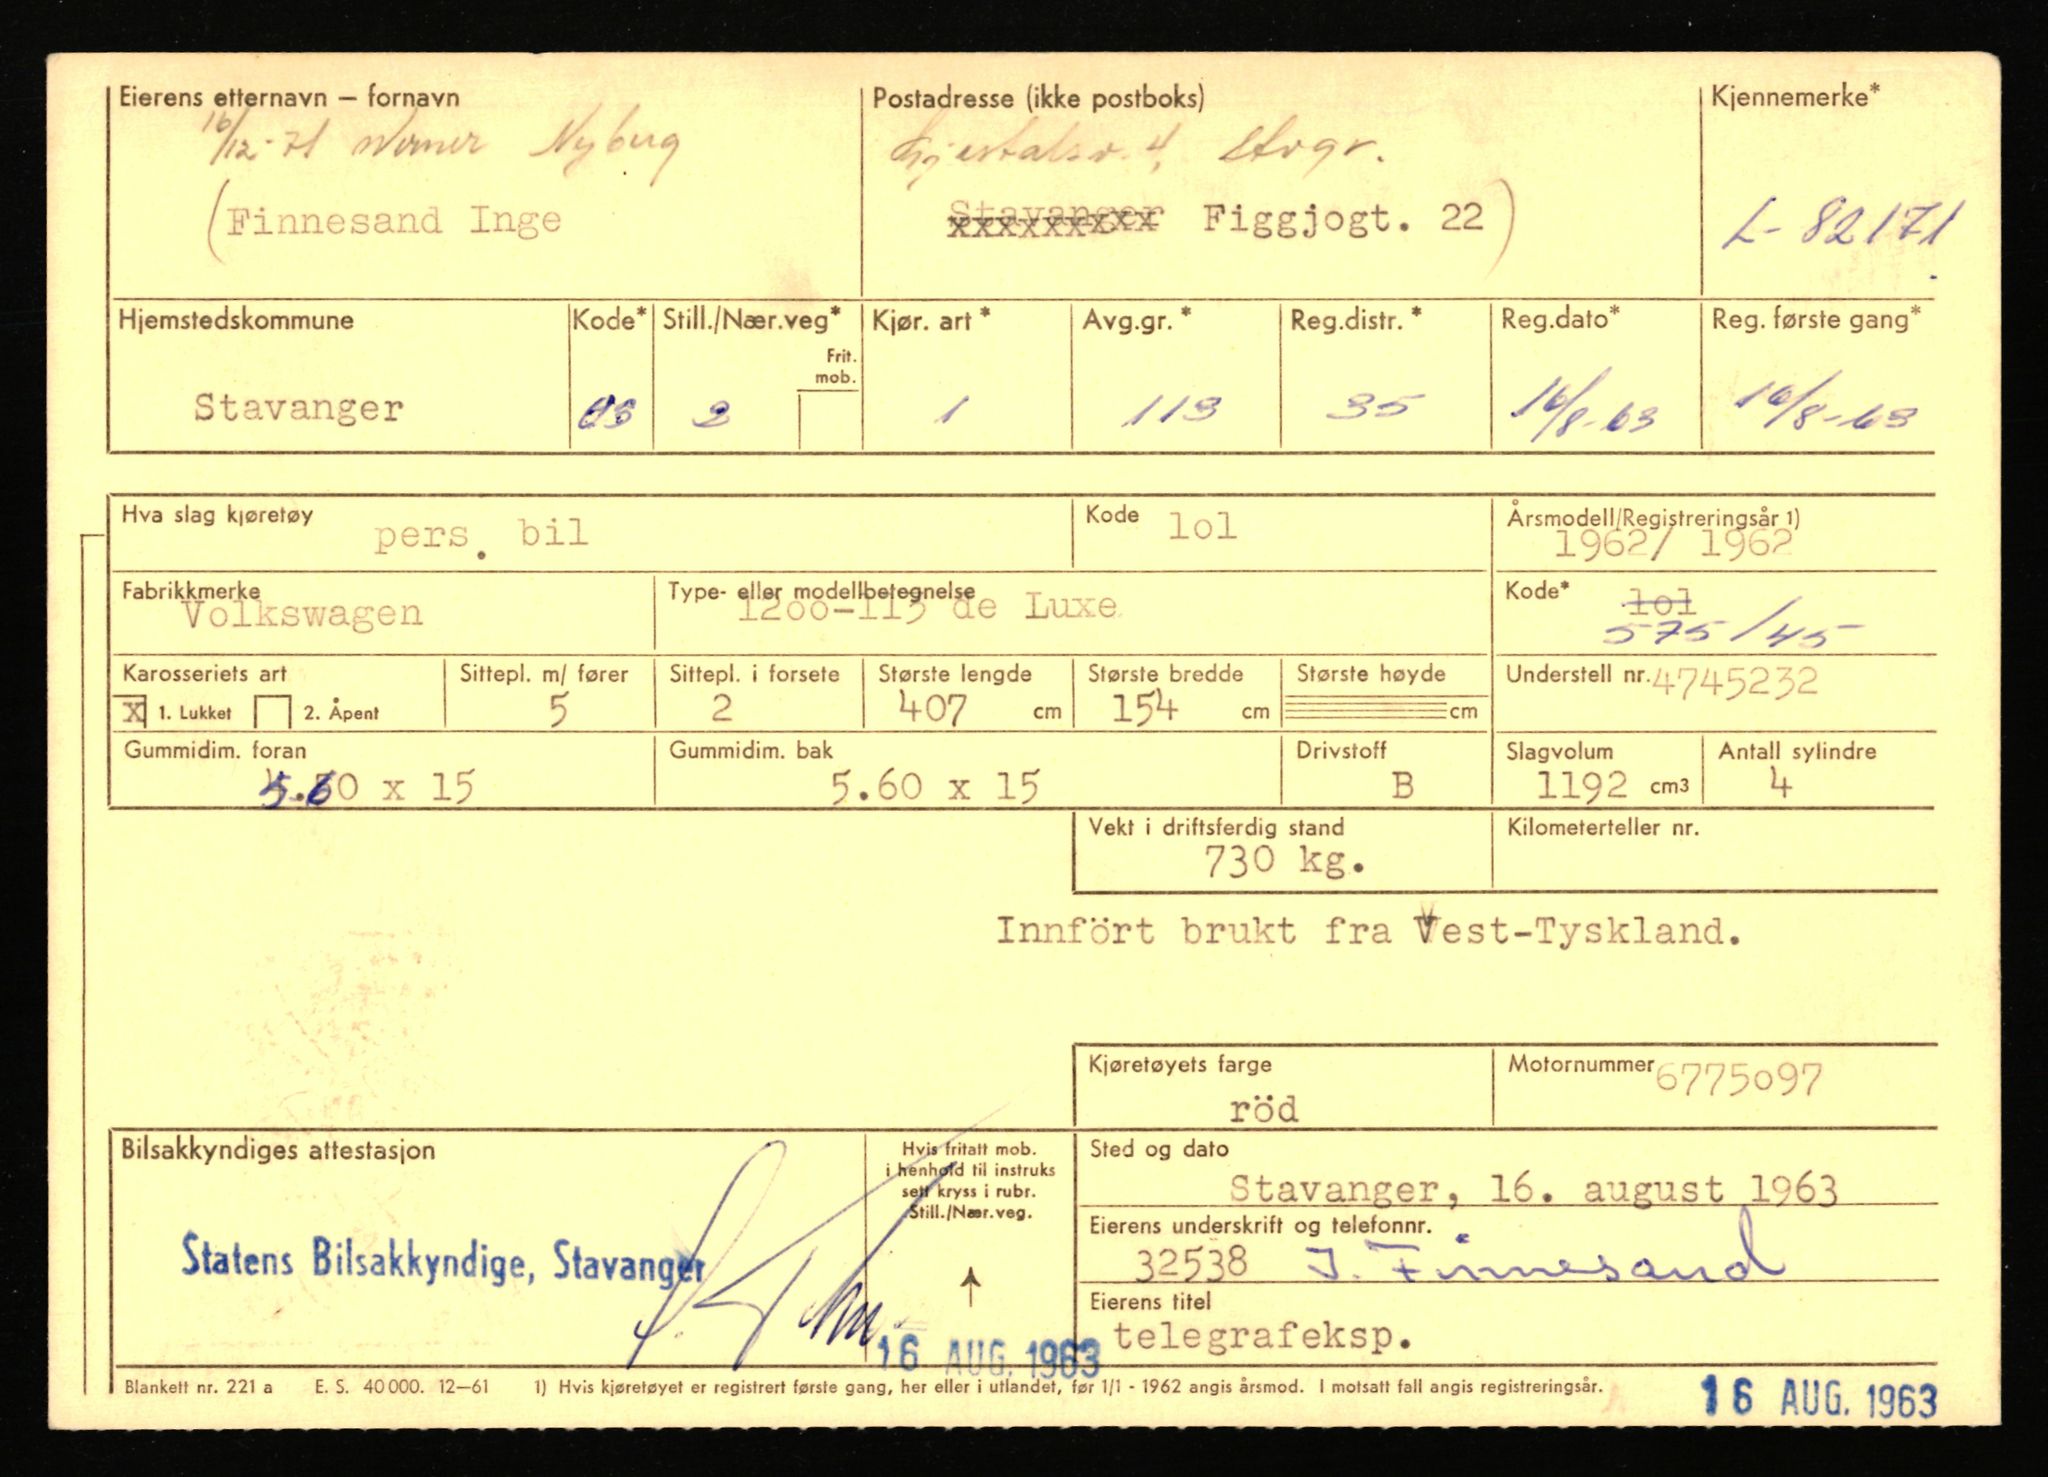 Eierens etternavn – fornavn
Postadresse (ikke postboks)
Kjennemerke*
16/12-71 Werner Nyberg
4, Stvgr.
(Finnesand Inge
Stavanger Figgjogt. 22)
L- 82171
Hjemstedskommune
Kode*
Still./Nær.veg*
Frit. mob.
Kjør. art *
Avg.gr. *
Reg.distr. *
Reg.dato*
Reg. første gang*
Stavanger
03
2
1
113
35
16/8-63
16/8-63
Hva slag kjøretøy
pers. bil
Kode
lol
Årsmodell/Registreringsår 1)
1962/ 1962
Fabrikkmerke
Volkswagen
Type- eller modellbetegnelse
1200-113 de Luxe
Kode*
lol
575/45
Karosseriets art
X 1. Lukket
2. Åpent
Sittepl. m/ fører
5
Sittepl. i forsete
2
Største lengde
407 cm
Største bredde
154 cm
Største høyde
cm
Understell nr. 4745232
Gummidim. foran
5.60 x 15
Gummidim. bak
5.60 x 15
Drivstoff
B
Slagvolum
1192 cm3
Antall sylindre
4
Vekt i driftsferdig stand
730 kg.
Kilometerteller nr.
Innfört brukt fra Vest-Tyskland.
Kjøretøyets farge
röd
Motornummer 6775097
Bilsakkyndiges attestasjon
Statens Bilsakkyndige, Stavanger
16 AUG. 1963
Hvis fritatt mob.
i henhold til instruks
sett kryss i rubr.
Still./Nær.veg.
Sted og dato
Stavanger, 16. august 1963
Eierens underskrift og telefonnr.
32538 I. Finnesand
Eierens titel
telegrafeksp.
Blankett nr. 221 a E. S. 40 000. 12–61 1) Hvis kjøretøyet er registrert første gang, her eller i utlandet, før 1/1 - 1962 angis årsmod. I motsatt fall angis registreringsår.
16 AUG. 1963